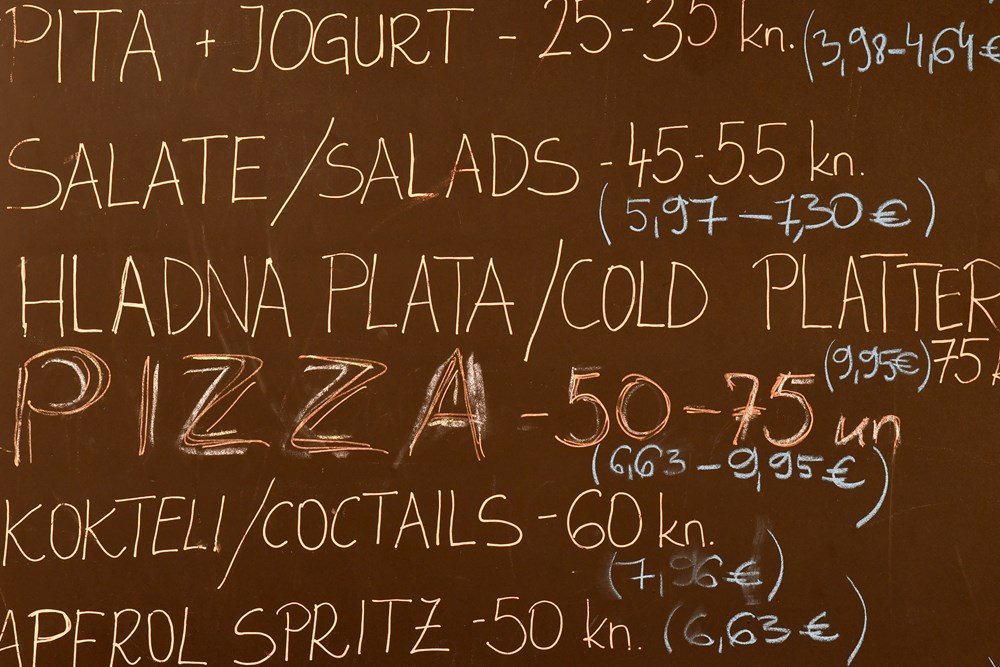 PITA + JOGURT - 25-35 kn. (3,98-4,64€
SALATE/SALADS - 45-55 kn.
(5,97 - 7,30 €)
HLADNA PLATA/COLD PLATTER
(9,95€) 75 k
PIZZA - 50-75 un
(6,63 - 9,95 €)
KOKTELI/COCTAILS - 60 kn.
(7,96 €)
APEROL SPRITZ - 50 kn. (6,63 €)